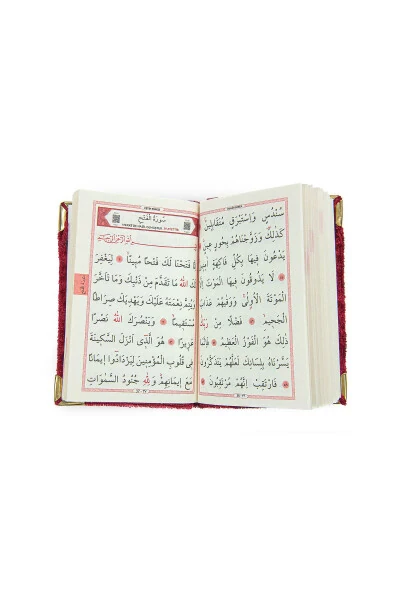 سُنْدُسٍ وَاِسْتَبْرَقٍ مُتَقَابِلٖينَ
كَذٰلِكَ وَزَوَّجْنَاهُمْ بِحُورٍ عٖينٍ
يَدْعُونَ فٖيهَا بِكُلِّ فَاكِهَةٍ اٰمِنٖينَ
لَا يَذُوقُونَ فٖيهَا الْمَوْتَ اِلَّا
الْمَوْتَةَ الْاُولٰى وَوَقٰيهُمْ عَذَابَ
الْجَحٖيمِ فَضْلًا مِنْ رَبِّكَ
ذٰلِكَ هُوَ الْفَوْزُ الْعَظٖيمُ فَاِنَّمَا
يَسَّرْنَاهُ بِلِسَانِكَ لَعَلَّهُمْ يَتَذَكَّرُونَ
فَارْتَقِبْ اِنَّهُمْ مُرْتَقِبُونَ
سُورَةُ الْفَتْحِ
بِسْمِ اللّٰهِ الرَّحْمٰنِ الرَّحٖيمِ
اِنَّا فَتَحْنَا لَكَ فَتْحًا مُبٖينًا لِيَغْفِرَ
لَكَ اللّٰهُ مَا تَقَدَّمَ مِنْ ذَنْبِكَ وَمَا تَاَخَّرَ
وَيُتِمَّ نِعْمَتَهُ عَلَيْكَ وَيَهْدِيَكَ صِرَاطًا
مُسْتَقٖيمًا وَيَنْصُرَكَ اللّٰهُ نَصْرًا
عَزٖيزًا هُوَ الَّذٖى اَنْزَلَ السَّكٖينَةَ
فٖى قُلُوبِ الْمُؤْمِنٖينَ لِيَزْدَادُوا اٖيمَانًا
مَعَ اٖيمَانِهِمْ وَلِلّٰهِ جُنُودُ السَّمٰوَاتِ